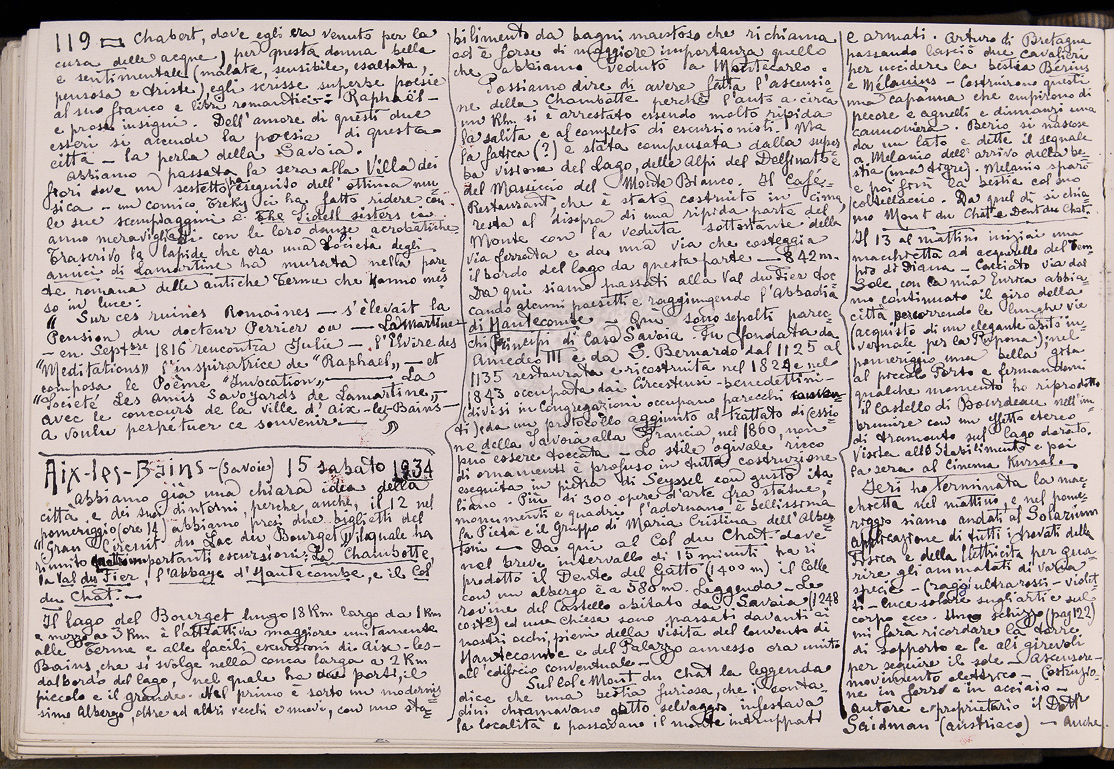 119 Chabert, dove egli era venuto per la
cura delle acque) per questa donna bella
e sentimentale (malata, sensibile, esaltata,
pensosa e triste), egli scrisse superbe poesie
al suo franco e libri romantici - Raphaël -
e prose insigni. Dell'amore di questi due
esseri si accende la poesia di questa
città - la perla della Savoia.
Abbiamo passata la sera alla Villa dei
fiori dove un sestetto ha eseguito dell'ottima mu-
sica - un comico, Treky ci ha fatto ridere con
le sue scempiaggini e The Sidell sisters ci
anno meravigliati con le loro danze acrobatiche.
Trascrivo la lapide che ora una Società degli
amici di Lamartine ha murata nella pare-
te romana delle antiche Terme che hanno mes-
so in luce:
"Sur ces ruines Romaines - s'élevait la
Pension du docteur Perrier ou - Lamartine
- en Septbre 1816 rencontra Julie - l'Elvire des
"Meditations" l'inspiratrice de "Raphaël" - et
composa le Poème "Invocation" - La
"Societé Les Amis Savoyards de Lamartine"
avec le concours de la ville d'Aix-les-Bains -
a voulu perpétuer ce souvenir. - "
Aix-les-Bains - (Savoie) 15 sabato 1934
Abbiamo già una chiara idea della
città e dei suoi dintorni, perchè anche, il 12 nel
pomeriggio (ore 14) abbiamo presi due biglietti del
"Gran Circuit du Lac du Bourget" il quale ha
riunito importanti escursioni: La Chambotte,
la Val du Fier, l'abbaye d'Hautecombe, e il Col
du Chat. -
Il lago del Bourget lungo 18 Km largo da 1 Km
e mezzo a 3 Km è l'attrattiva maggiore unitamente
alle Terme e alle facili escursioni di Aix-les-
Bains, che si svolge nella conca larga a 2 Km
dal bordo del lago, nel quale ha due porti, il
piccolo e il grande. Nel primo è sorto un modernis-
simo Albergo, oltre ad altri vecchi e nuovi, con uno sta-
bilimento da bagni maestoso che richiama
ed è forse di maggiore importanza quello
che abbiamo veduto a Montecarlo
Possiamo dire di avere fatta l'ascensio-
ne della Chambotte perchè l'auto a circa
un Km. si è arrestato essendo molto ripida
la salita e al completo di escursionisti. Ma
la fatica (?) è stata compensata dalla super-
ba visione del lago, delle Alpi del Delfinato e
del Massiccio del Monte Bianco. Il Café-
Restaurant che è stato costruito in cima
resta al disopra di una ripida parte del
Monte con la veduta sottostante della
via ferrata e da una via che costeggia
il bordo del lago da questa parte - 842 m.
Da qui siamo passati alla Val du Fier toc-
cando alcuni paesetti e raggiungendo l'Abbadia
di Hautecombe. Qui sono sepolti parec-
chi Principi di Casa Savoia. Fu fondata da
Amedeo III e da S. Bernardo dal 1125 al
1135 restaurata e ricostruita nel 1824 e nel
1843 occupata dai Circestensi-benedettini -
divisi in Congregazioni occupano parecchi
di Jeda un protocollo aggiunto al trattato di cessio-
ne della Savoia alla Francia, nel 1860, non
può essere toccata - Lo stile ogivale ricco
di ornamenti è profuso in tutta costruzione
eseguita in pietra di Seyssel con gusto ita-
liano. Più di 300 opere d'arte fra statue,
monumenti e quadri l'adornano e bellissima
la Pietà e il gruppo di Maria Cristina dell'Alber-
torio - Da qui al Col du Chat dove
nel breve intervallo di 15 minuti ho ri
prodotto il Dente del Gatto (1400 m) il Colle
con un albergo è a 580 m. Leggenda - Le
rovine del Castello abitato dai Savoia (1248
) ed una Chiesa sono passati davanti ai
nostri occhi, pieni della visita del convento di
Hautecombe e del Palazzo annesso ora unito
all'edificio conventuale -
Sul Col e Mont du Chat la leggenda
dice che una bestia furiosa, che i conta-
dini chiamavano gatto selvaggio infestava
la località e passavano il monte intruppati
e armati. Arturo di Bretagna
passando lasciò due cavalieri
per uccidere la bestia Bérius
e Mélanius - Costruirono questi
una capanna che empirono di
pecore e agnelli e dinnanzi una
. Berio si nascose
da un lato e dette il segnale
a Melanio dell'arrivo della be-
stia (una tigre). Melanio apparì
e poi forrì la bestia col suo
coltellaccio. Da quel dì si chia-
mò Mont du Chat e Dent du Chat.
Il 13 al mattino iniziai una
macchietta ad acquerello del Tem-
pio di Diana - Cacciato via dal
Sole con la mia Enrica abbia-
mo continuato il giro della
città percorrendo le lunghe vie
(acquisto di un elegante abito in-
vernale per la Pupona); nel
pomeriggio una bella gita
al piccolo Porto e fermandomi
qualche momento ho riprodotto
il castello di Bourdeau nell'im-
brunire con un effetto etereo
di tramonto sul lago dorato.
Visita allo Stabilimento e poi
la sera al Cinema Kursal. -
Ieri ho terminata la mac-
chietta nel mattino, e nel pome-
riggio siamo andati al Solarium
applicazione di tutti i trovati della
Fisica e della Elettricità per gua-
rire gli ammalati di varia
specie - (raggi ultrarossi - violet-
ti - luce solare sugli arti e sul
corpo ecc. Uno schizzo (pag 122)
mi fara ricordare la torre
di supporto e le ali girevoli
per seguire il sole - Ascensore -
movimento elettrico - Costruzio-
ne in ferro e in acciaio -
autore e proprietario il Dott
Saidman (austriaco) - Anche